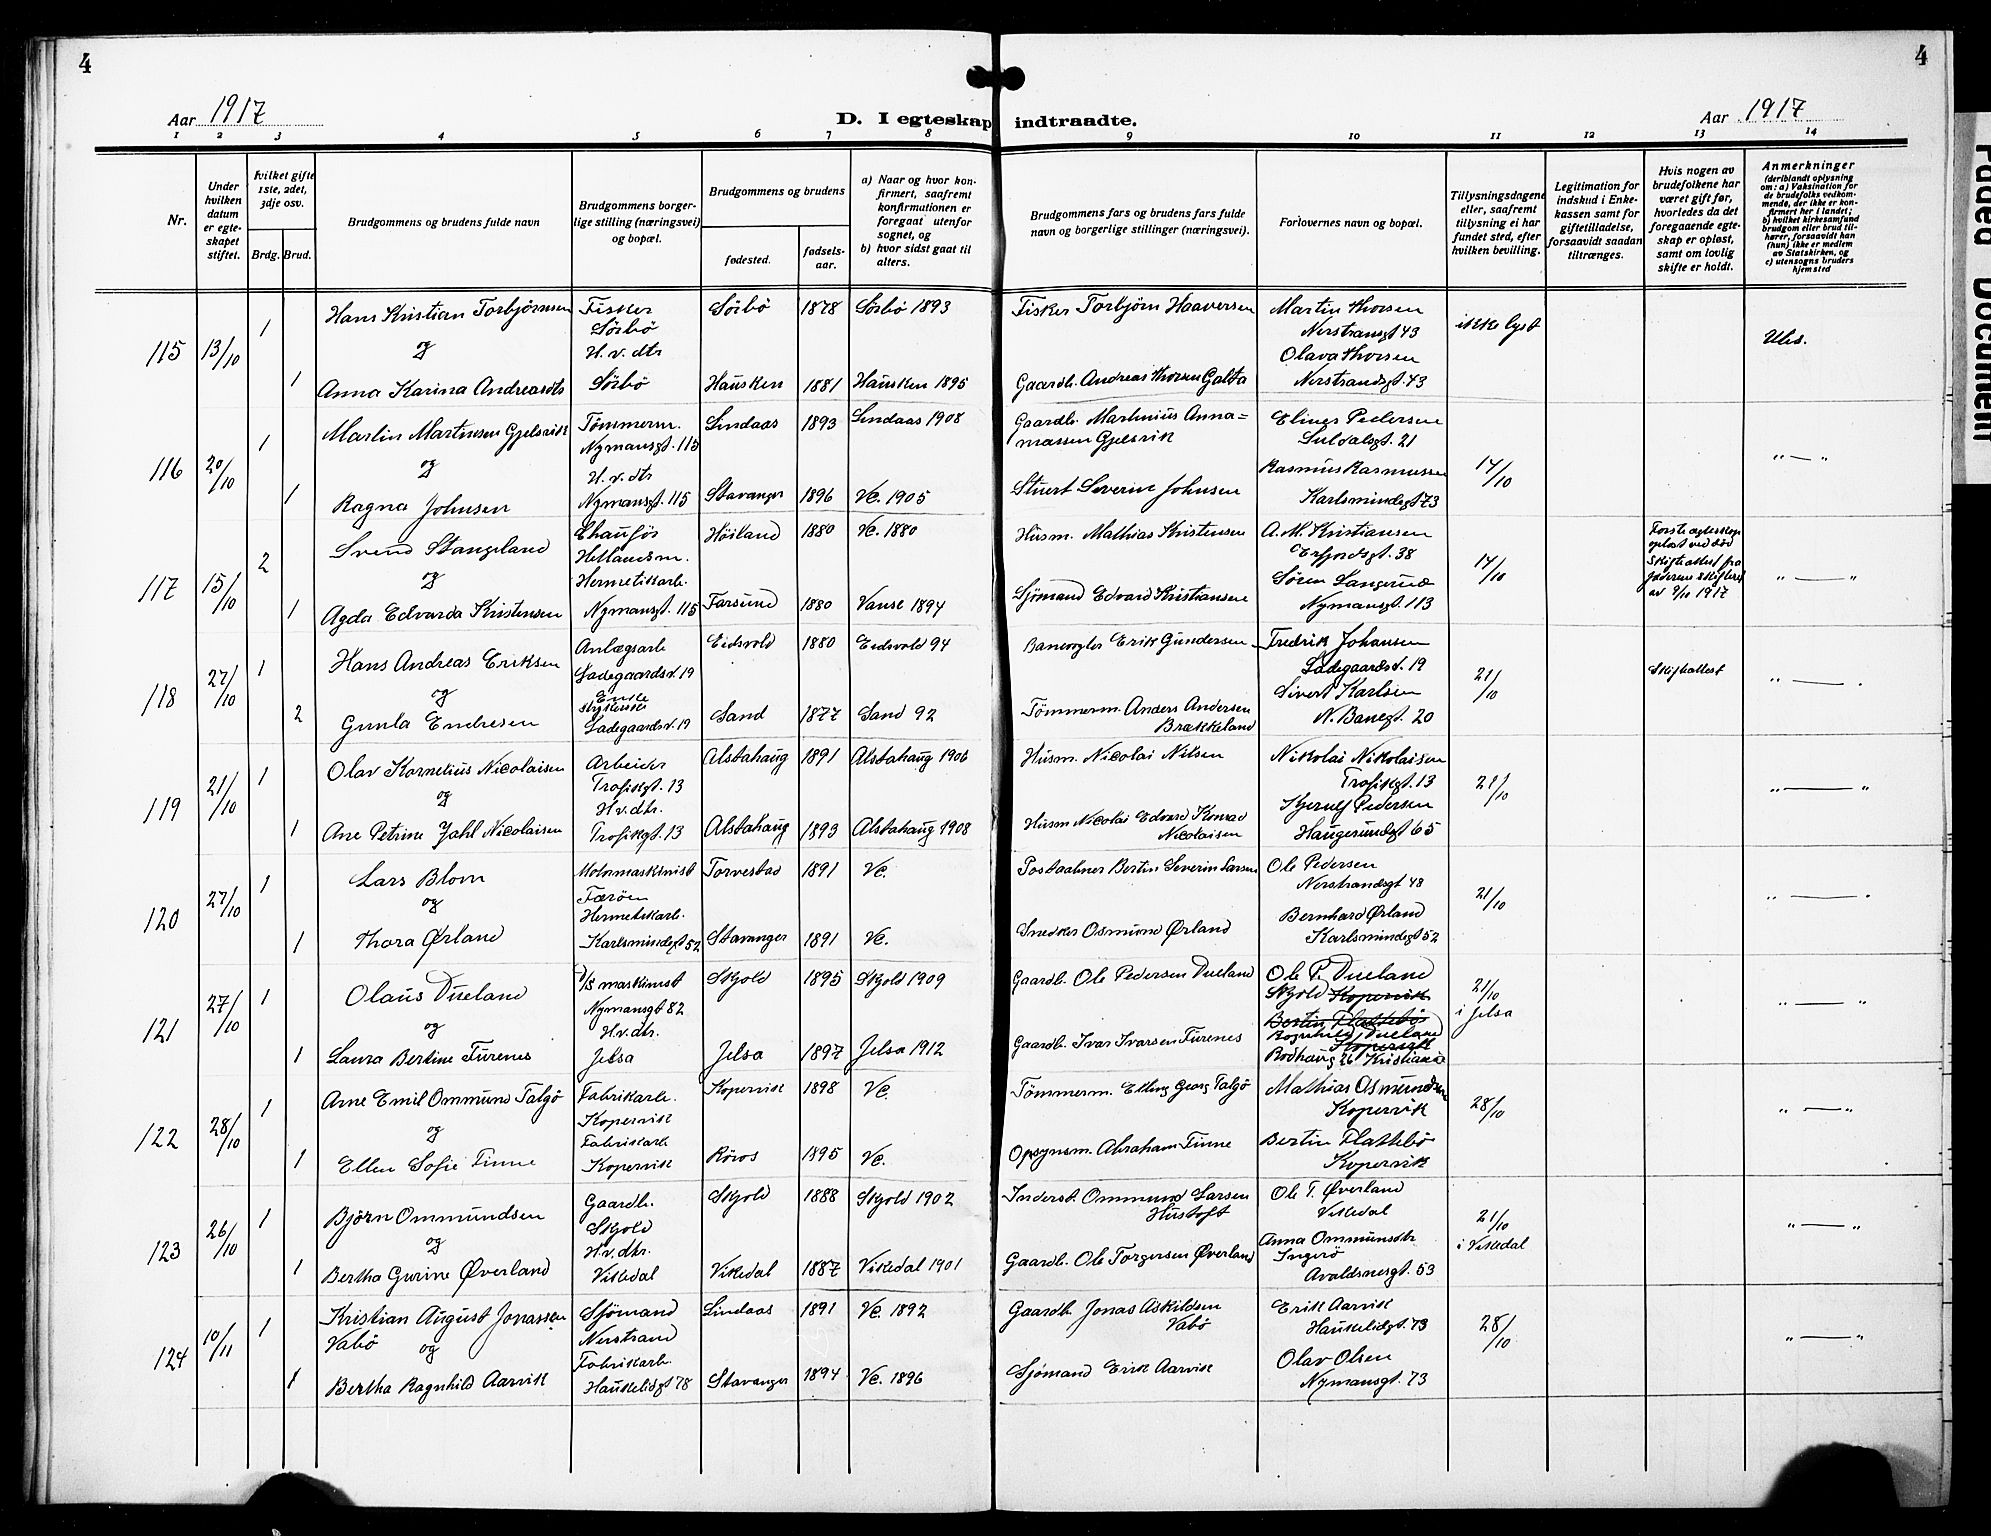 4
4
Aar 1917
D. I egteskap indtraadte.
Aar 1917
1 2 3 4 5 6 7 8 9 10 11 12 13 14
Nr.
Under hvilken datum er egteskapet stiftet.
Hvilket gifte 1ste, 2det, 3dje osv.
Brdg. Brud.
Brudgommens og brudens fulde navn
Brudgommens borgerlige stilling (næringsvei) og bopæl.
Brudgommens og brudens
fødested.
fødselsaar.
a) Naar og hvor konfirmert, saafremt konfirmationen er foregaat utenfor sognet, og
b) hvor sidst gaat til alters.
Brudgommens fars og brudens fars fulde navn og borgerlige stillinger (næringsvei).
Forlovernes navn og bopæl.
Tillysningsdagene eller, saafremt tillysning ei har fundet sted, efter hvilken bevilling.
Legitimation for indskud i Enkekassen samt for giftetilladelse, forsaavidt saadan tiltrænges.
Hvis nogen av brudefolkene har været gift før, hvorledes da det foregaaende egteskap er opløst, samt om lovlig skifte er holdt.
Anmerkninger
(deriblandt oplysning om: a) Vaksination for de brudefolks vedkommende, der ikke er konfirmert her i landet; b) hvilket kirkesamfund brudgom eller brud tilhører, forsaavidt han (hun) ikke er medlem av Statskirken, og c) utensogns bruders hjemsted
115 13/10 1 Hans Kristian Torbjörnsen Fisker Sörbö Sörbö 1878 Sörbö 1893 Fisker Torbjörn Haaversen Martin Thorsen Nerstransgt 43 ikke lyst
og H. v. dtr Olava Thorsen
1 Anna Karina Andreasdtr Sörbö Hausken 1881 Hausken 1895 Gaardb. Andreas Thorsen Galta Nerstrandsgt. 43
116 20/10 1 Martin Martinsen Gjelsvik Tömmerm. Nymansgt. 115 Lindaas 1893 Lindaas 1908 Gaardb. Martinius Annamassen Gjelsvik Elines Pedersen Suldalsgt. 21 14/10 "—"
og H. v. dtr Rasmus Rasmussen
1 Ragna Johnsen Nymansgt. 115 Stavanger 1896 Vc. 1905 Stuert Severin Johnsen Karlsmindegt 73
117 15/10 2 Svend Stangeland Chauför Hetlandsm. Höiland 1880 Vc. 1880 Husm. Mathias Kristensen A. M. Kristiansen Erfjordsgt. 38 14/10 Förste egteskap oplöst ved död Skifteattest fra Jæderens skifteret av 9/10 1917 "—"
og Hermetikarb. Sören
1 Agda Edvarda Kristensen Nymansgt. 115 Farsund 1880 Vanse 1894 Sjömand Edvard Kristiansen Nymansgt. 113
118 27/10 1 Hans Andreas Eriksen Anlægsarb Ladegaardsv. 19 Eidsvold 1880 Eidsvold 94 Banevogter Erik Gundersen Fredrik Johansen Ladegaardsv. 19 21/10 Skifteattest "—"
og Enke Sivert Karlsen
2 Gunla Endresen Ladegaardsv. 19 Sand 1877 Sand 92 Tömmerm. Anders Andersen Brækkeland N. Banegt. 20
119 21/10 1 Olav Kornelius Nicolaisen Arbeider Trofikgt. 13 Alstahaug 1891 Alstahaug 1906 Husm. Nicolai Nilsen Nikolai Nikolaisen Trofikgt. 13 21/10 "—"
og H. v. dtr. Pedersen
1 Ane Petrine Jahl Nicolaisen Trofikgt. 13 Alstahaug 1893 Alstahaug 1908 Husm Nicolai Edvard Konrad Nicolaisen Haugesundgt 65
120 27/10 1 Lars Blom Motormaskinist Færöen Torvestad 1891 Vc. Postaabner Bertin Severin Larsen Ole Pedersen Nerstrandsgt 48 21/10 "—"
og Hermetikarb. Bernhard Ørland
1 Thora Ørland Karlsmindegt 52 Stavanger 1891 Vc. Snedker Osmund Ørland Karlsmindegt 52
121 27/10 1 Olaus Dueland D/S maskinist Nymansgt 82 Skjold 1895 Skjold 1909 Gaardb. Ole Pedersen Dueland Ole P. Dueland Skjold Kopervik 21/10 i Jelsa "—"
og H. v. dtr. Bertin Flattebö Dueland Kopervik
1 Laura Bertine Furenes Jelsa Jelsa 1897 Jelsa 1912 Gaardb. Ivar Ivarsen Furenes Rodhaug 26 Kristiania
122 28/10 1 Arne Emil Ommund Talgö Fabrikarb. Kopervik Kopervik 1898 Vc. Tömmerm. Elling Georg Talgö Mathias Osmundsen Kopervik 28/10 "—"
og Fabrikarb Bertin Flattebö
1 Ellen Sofie Finne Kopervik Röros 1895 Vc. Opsynsm. Abraham Finne Kopervik
123 26/10 1 Björn Ommundsen Gaardb. Skjold Skjold 1888 Skjold 1902 Inderst Ommund Larsen Hustoft Ole T. Øverland Vikedal 21/10 i Vikedal "—"
og H. v. dtr. Anna Ommundsdtr
1 Bertha Gurine Øverland Vikedal Vikedal 1887 Vikedal 1901 Gaardb. Ole Torgersen Øverland Avaldsnesgt. 53
124 10/11 1 Kristian August Jonassen Vabö Sjömand Nerstrand Lindaas 1891 Vc. 1892 Gaardb. Jonas Askildsen Vabö Erik Aarvik Haukelidgt. 73 28/10 "—"
og Fabrikarb. Olav Olsen
1 Bertha Ragnhild Aarvik Haukelidgt 78 Stavanger 1894 Vc. 1896 Sjömand Erik Aarvik Nymansgt. 73